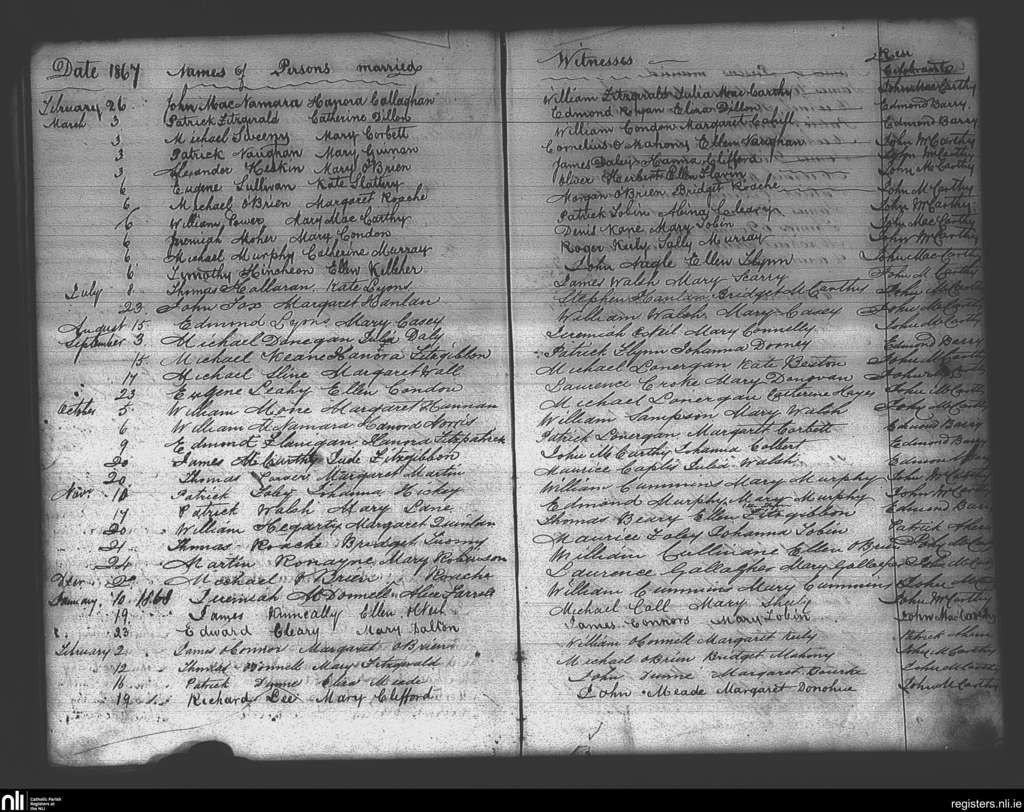 Date 1867 Names of Persons married Witnesses Rev Celebrants
February 26 John MacNamara Hanora Callaghan William Fitzgirald Julia Mac Carthy John Mac Carthy
March 3 Patrick Fitzgirald Catherine Dillon Edmond Ryan Eliza Dillon Edmond Barry
3 Michael Sweeny Mary Corbett William Condon Margaret Cahill Edmond Barry
3 Patrick Vaughan Mary Cornelius O Mahony Ellen Vaughan John McCarthy
3 Alexander Heskin Mary O'Brien James Daley Hanna Clifford
6 Eugene Sullivan Kate Slattery Oliver Herbert Ellen Slavin John McCarthy
6 Michael O'Brien Margaret Roache Morgan O'Brien Bridget Roache John McCarthy
6 William Power Mary Mac Carthy Patrick Tobin Mina Cleary John McCarthy
6 Jeremiah Moher Mary Condon Denis Kane Mary Tobin John Mac Carthy
6 Michael Murphy Catherine Murray Roger Kiely Sally Murray John McCarthy
6 Timothy Hincheon Ellen Kelleher John Nagle Ellen Flynn John Mac Carthy
July 8 Thomas Hallaran Kate Lyons James Walsh Mary Scarry John McCarthy
23 John Fox Margaret Hanlan Stephen Hanlan Bridget McCarthy John McCarthy
August 15 Edmond Lyons Mary Casey William Walsh Mary Casey John McCarthy
September 3 Michael Donegan Julia Daly Jeremiah Neil Mary Connelly John McCarthy
15 Michael Keane Hanora Fitzgibbon Patrick Flynn Johanna Drooney Edmond Barry
17 Michael Sline Margaret Wall Michael Lonergan Kate Beston John McCarthy
23 Eugene Leahy Ellen Condon Laurence Croke Mary Donovan
October 5 William Mone Margaret Hannan Michael Lonergan Catherine Hayes John McCarthy
6 William McNamara Norris William Sampson Mary Walsh John McCarthy
9 Edmond Flanegan Hanora Fitzpatrick Patrick Lonergan Margaret Corbett Edmond Barry
20 James McCarthy Jude Fitzgibbon John McCarthy Johanna Collert Edmond Barry
20 Thomas Carver Margaret Martin Maurice Caplis Julia Walsh Edmond
Novr. 10 Patrick Foley Johanna Hickey William Cummins Mary Murphy John McCarthy
17 Patrick Walsh Mary Lane Edmond Murphy Mary Murphy John McCarthy
20 William Hegarty Margaret Quinlan Thomas Beary Ellen Fitzgibbon Edmond Barry
21 Thomas Roache Bridget Twomy Maurice Foley Johanna Tobin Patrick
24 Martin Ronayne Mary Robinson William Cullinane Ellen O'Brien
2 Michael O'Brien Roache Laurence Gallagher Mary Gallagher John McC
January 10 1868 Jeremiah McDonnell Alice Farrell William Cummins Mary Cummins John McC
19 James Kinneally Ellen Michael Call Mary Sheily John McCarthy
23 Edward Cleary Mary Dalton James Connors Mary Tobin John Mac Carthy
February 2 James O'Connor Margaret O'Brien William O'Connell Margaret Kiely Patrick
12 Thomas O'Donnell Mary Fitzgirald Michael O'Brien Bridget Mahony John McCarthy
16 Patrick Dunne Eliza Meade John Dunne Margaret Bourke John McCarthy
19 Richard Lee Mary Clifford John Meade Margaret Donohue John McCarthy
nli Catholic Parish Registers at the NLI registers.nli.ie